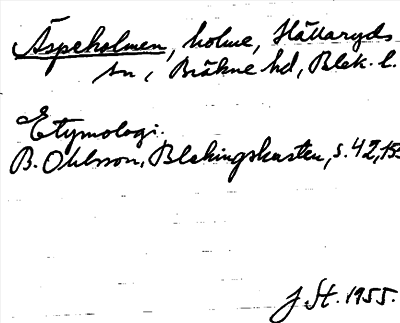 Äspeholmen, holme, Hällaryds
sn, Bräkne hd, Blek. l.
Etymologi.
B. Ohlsson, Blekingskusten, s. 42, 153
J. St. 1955.